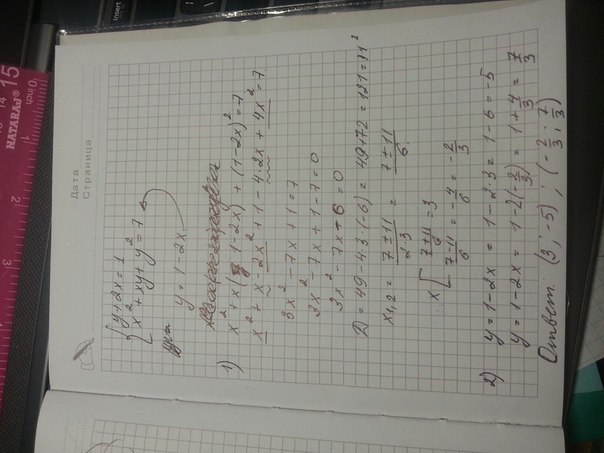 Дата
Страница
{ y+2x=1
x²+xy+y²=7
y=1-2x
1) x²+x(1-2x)+(1-2x)²=7
x²+x-2x²+1-4·2x+4x²=7
3x²-7x+1=7
3x²-7x+1-7=0
3x²-7x-6=0
D=49-4·3(-6)=49+72=121=11²
x1,2 = (7±11)/(2·3) = (7±11)/6
x [ (7+11)/6=3
(7-11)/6=-4/6=-2/3
2) y=1-2x=1-2·3=1-6=-5
y=1-2x=1-2(-2/3)=1+4/3=7/3
Ответ (3;-5);(-2/3;7/3)
15
14
NATARAJ®
0 inch
Insert